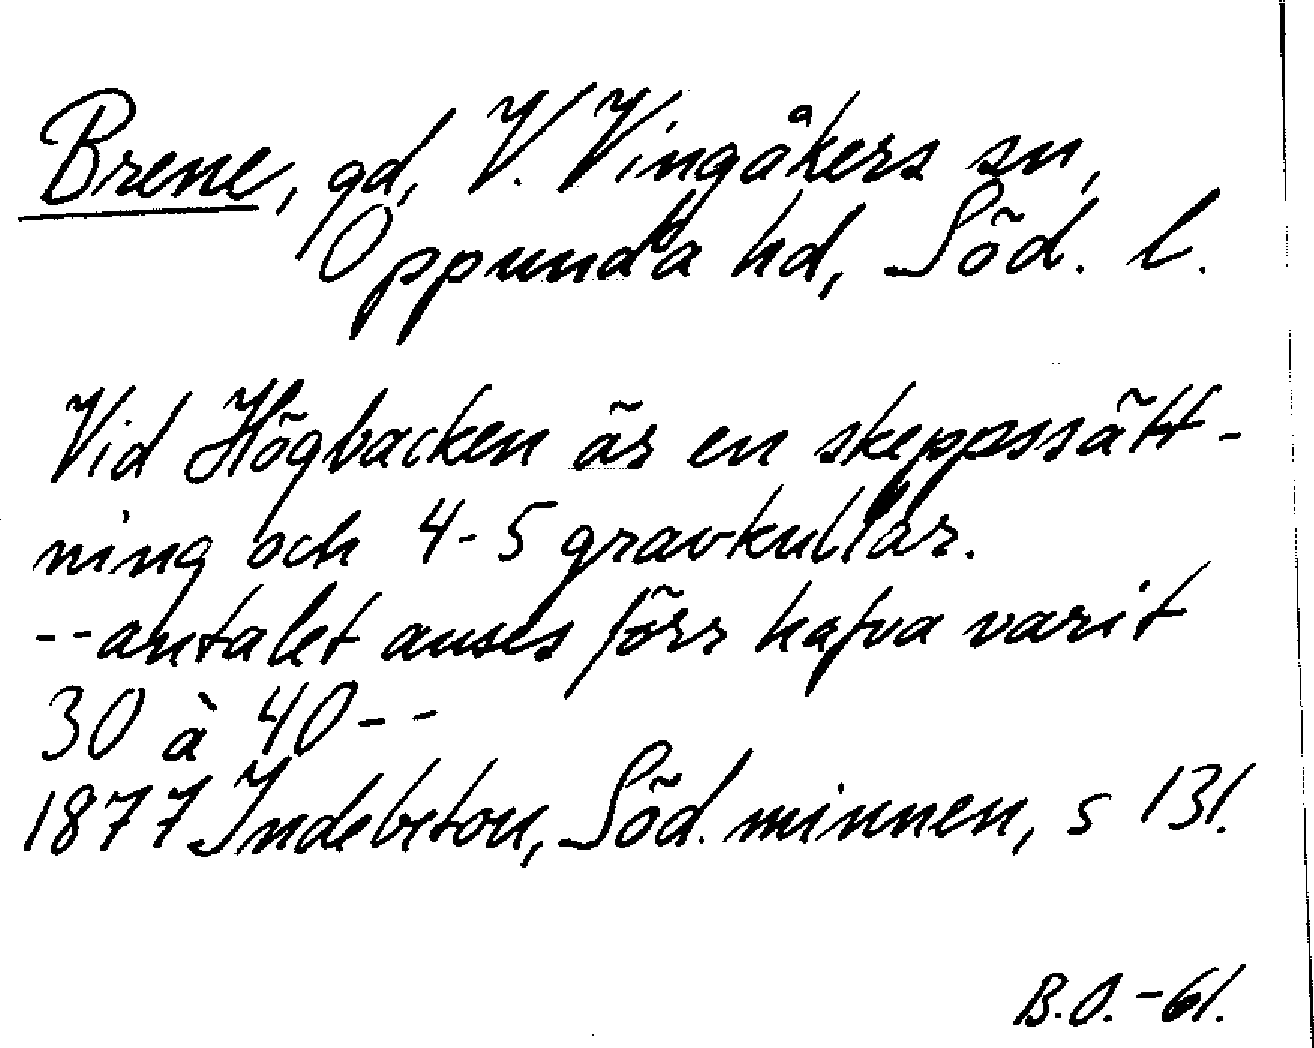 Brene, gd, V. Vingåkers sn,
Oppunda hd, Söd. l.
Vid Högbacken är en skeppssätt-
ning och 4-5 gravkullar.
--antalet anses förr hafva varit
30 à 40--
1877 Indebetou, Söd. minnen, s 131.
B.O. -61.